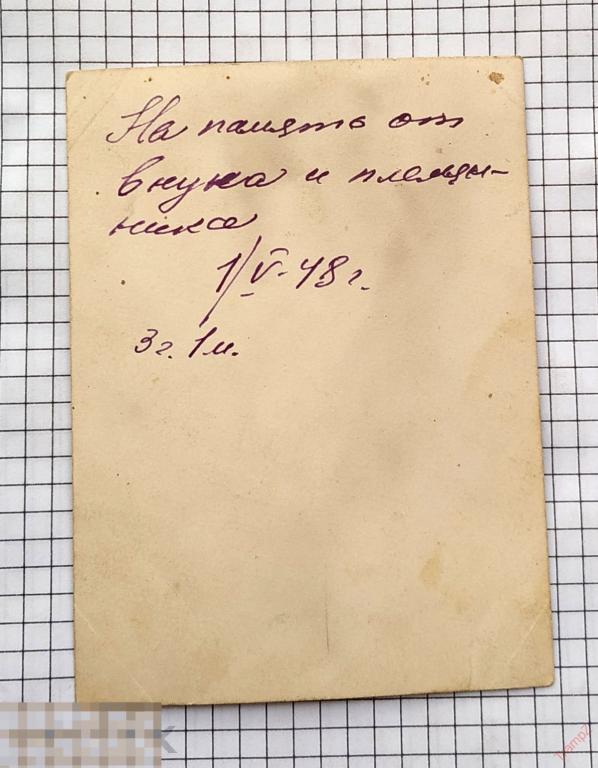 На память от
внука и племян-
ника
1/V-48 г.
3 г. 1 м.